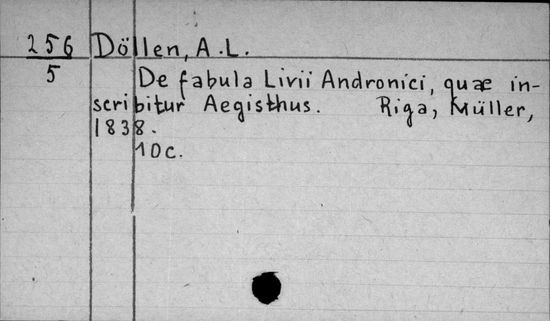 256 Döllen, A.L.
5
De fabula Livii Andronici, quæ in-
scribitur Aegisthus. Riga, Müller,
1838.
10c.